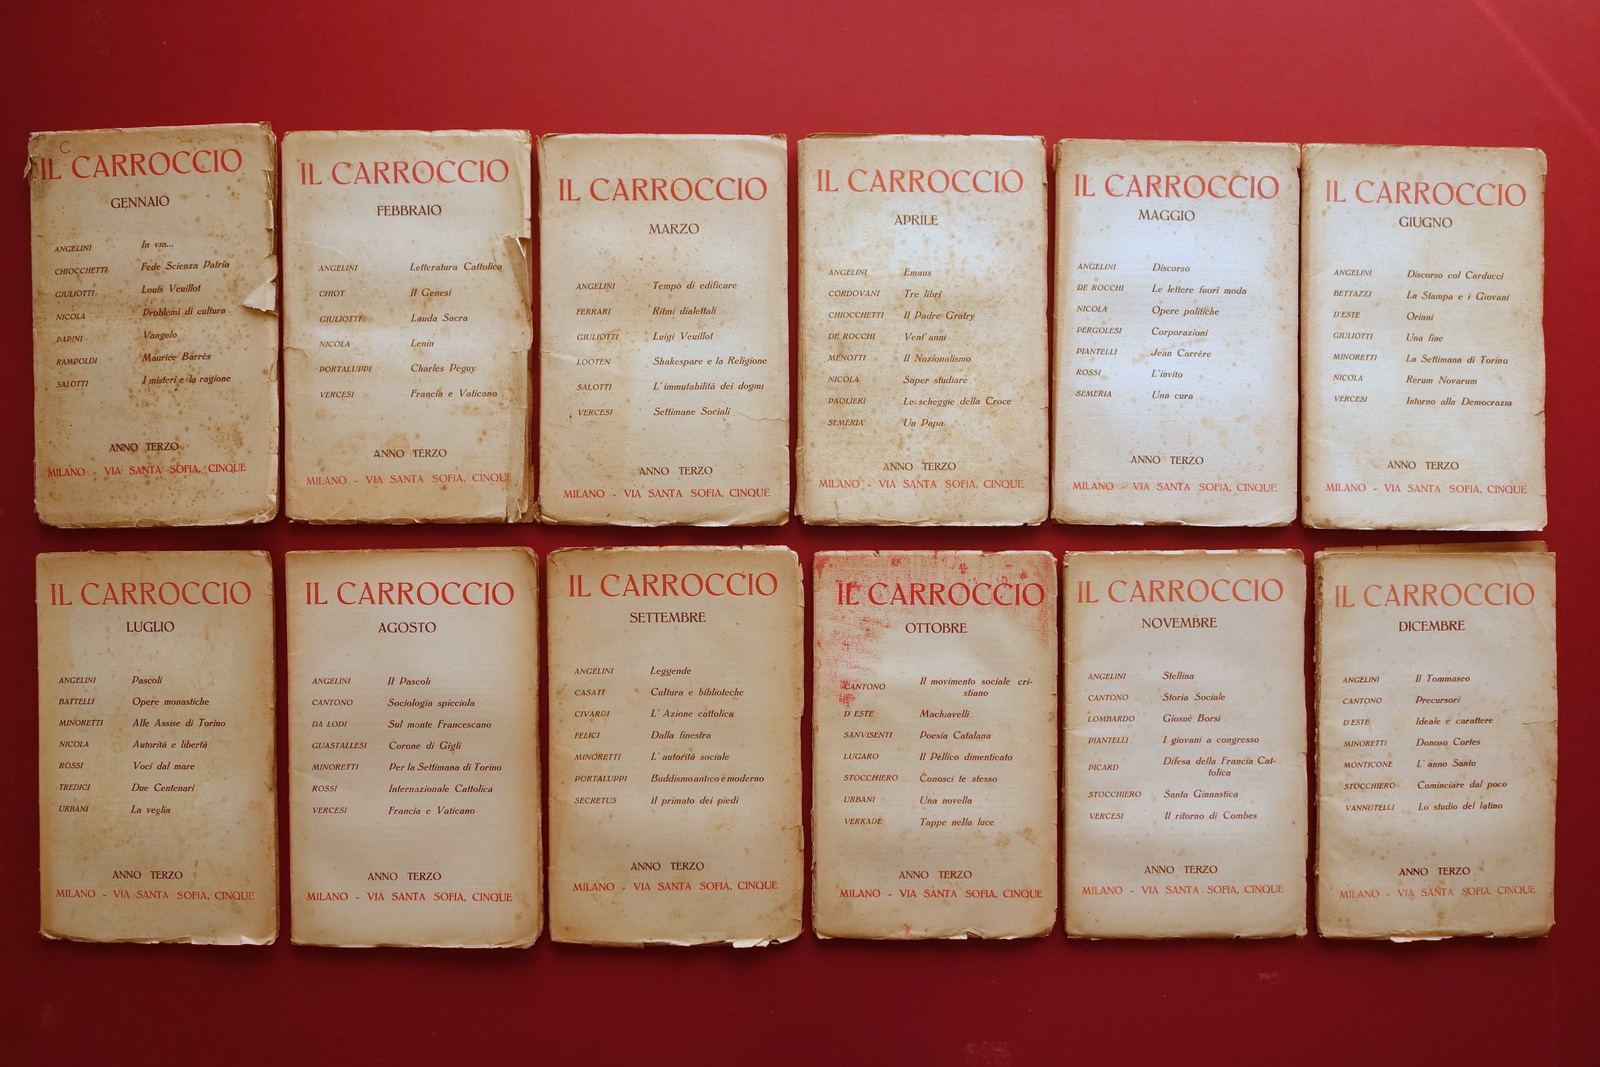 C
IL CARROCCIO
GENNAIO
ANGELINI In via...
CHIOCCHETTI Fede Scienza Patria
GIULIOTTI Louis Veuillot
NICOLA Problemi di cultura
PAPINI Vangelo
RAMPOLDI Maurice Barrès
SALOTTI I misteri e la ragione
ANNO TERZO
MILANO - VIA SANTA SOFIA, CINQUE
IL CARROCCIO
FEBBRAIO
ANGELINI Letteratura Cattolica
CHIOT Il Genesi
GIULIOTTI Lauda Sacra
NICOLA Lenin
PORTALUPPI Charles Peguy
VERCESI Francia e Vaticano
ANNO TERZO
MILANO - VIA SANTA SOFIA, CINQUE
IL CARROCCIO
MARZO
ANGELINI Tempo di edificare
FERRARI Ritmi dialettali
GIULIOTTI Luigi Veuillot
LOOTEN Shakespare e la Religione
SALOTTI L'immutabilità dei dogmi
VERCESI Settimane Sociali
ANNO TERZO
MILANO - VIA SANTA SOFIA, CINQUE
IL CARROCCIO
APRILE
ANGELINI Emaus
CORDOVANI Tre libri
CHIOCCHETTI Il Padre Gratry
DE ROCCHI Vent'anni
MENOTTI Il Nazionalismo
NICOLA Saper studiare
PAOLIERI Le scheggie della Croce
SEMERIA Un Papa
ANNO TERZO
MILANO - VIA SANTA SOFIA, CINQUE
IL CARROCCIO
MAGGIO
ANGELINI Discorso
DE ROCCHI Le lettere fuori moda
NICOLA Opere politiche
PERGOLESI Corporazioni
PIANTELLI Jean Carrère
ROSSI L'invito
SEMERIA Una cura
ANNO TERZO
MILANO - VIA SANTA SOFIA, CINQUE
IL CARROCCIO
GIUGNO
ANGELINI Discorso col Carducci
BETTAZZI La Stampa e i Giovani
D'ESTE Oriani
GIULIOTTI Una fine
MINORETTI La Settimana di Torino
NICOLA Rerum Novarum
VERCESI Intorno alla Democrazia
ANNO TERZO
MILANO - VIA SANTA SOFIA, CINQUE
IL CARROCCIO
LUGLIO
ANGELINI Pascoli
BATTELLI Opere monastiche
MINORETTI Alle Assise di Torino
NICOLA Autorità e libertà
ROSSI Voci dal mare
TREDICI Due Centenari
URBANI La veglia
ANNO TERZO
MILANO - VIA SANTA SOFIA, CINQUE
IL CARROCCIO
AGOSTO
ANGELINI Il Pascoli
CANTONO Sociologia spicciola
DA LODI Sul monte Francescano
GUASTALLESI Corone di Gigli
MINORETTI Per la Settimana di Torino
ROSSI Internazionale Cattolica
VERCESI Francia e Vaticano
ANNO TERZO
MILANO - VIA SANTA SOFIA, CINQUE
IL CARROCCIO
SETTEMBRE
ANGELINI Leggende
CASATI Cultura e biblioteche
CIVARDI L'Azione cattolica
FELICI Dalla finestra
MINORETTI L'autorità sociale
PORTALUPPI Buddismo antico e moderno
SECRETUS Il primato dei piedi
ANNO TERZO
MILANO - VIA SANTA SOFIA, CINQUE
IL CARROCCIO
OTTOBRE
CANTONO Il movimento sociale cri-
stiano
D'ESTE Machiavelli
SANVISENTI Poesia Catalana
LUGARO Il Pellico dimenticato
STOCCHIERO Conosci te stesso
URBANI Una novella
VERKADE Tappe nella luce
ANNO TERZO
MILANO - VIA SANTA SOFIA, CINQUE
IL CARROCCIO
NOVEMBRE
ANGELINI Stellina
CANTONO Storia Sociale
LOMBARDO Giosuè Borsi
PIANTELLI I giovani a congresso
PICARD Difesa della Francia Cat-
tolica
STOCCHIERO Santa Ginnastica
VERCESI Il ritorno di Combes
ANNO TERZO
MILANO - VIA SANTA SOFIA, CINQUE
IL CARROCCIO
DICEMBRE
ANGELINI Il Tommaseo
CANTONO Precursori
D'ESTE Ideale e carattere
MINORETTI Donoso Cortes
MONTICONE L'anno Santo
STOCCHIERO Cominciare dal poco
VANNUTELLI Lo studio del latino
ANNO TERZO
MILANO - VIA SANTA SOFIA, CINQUE